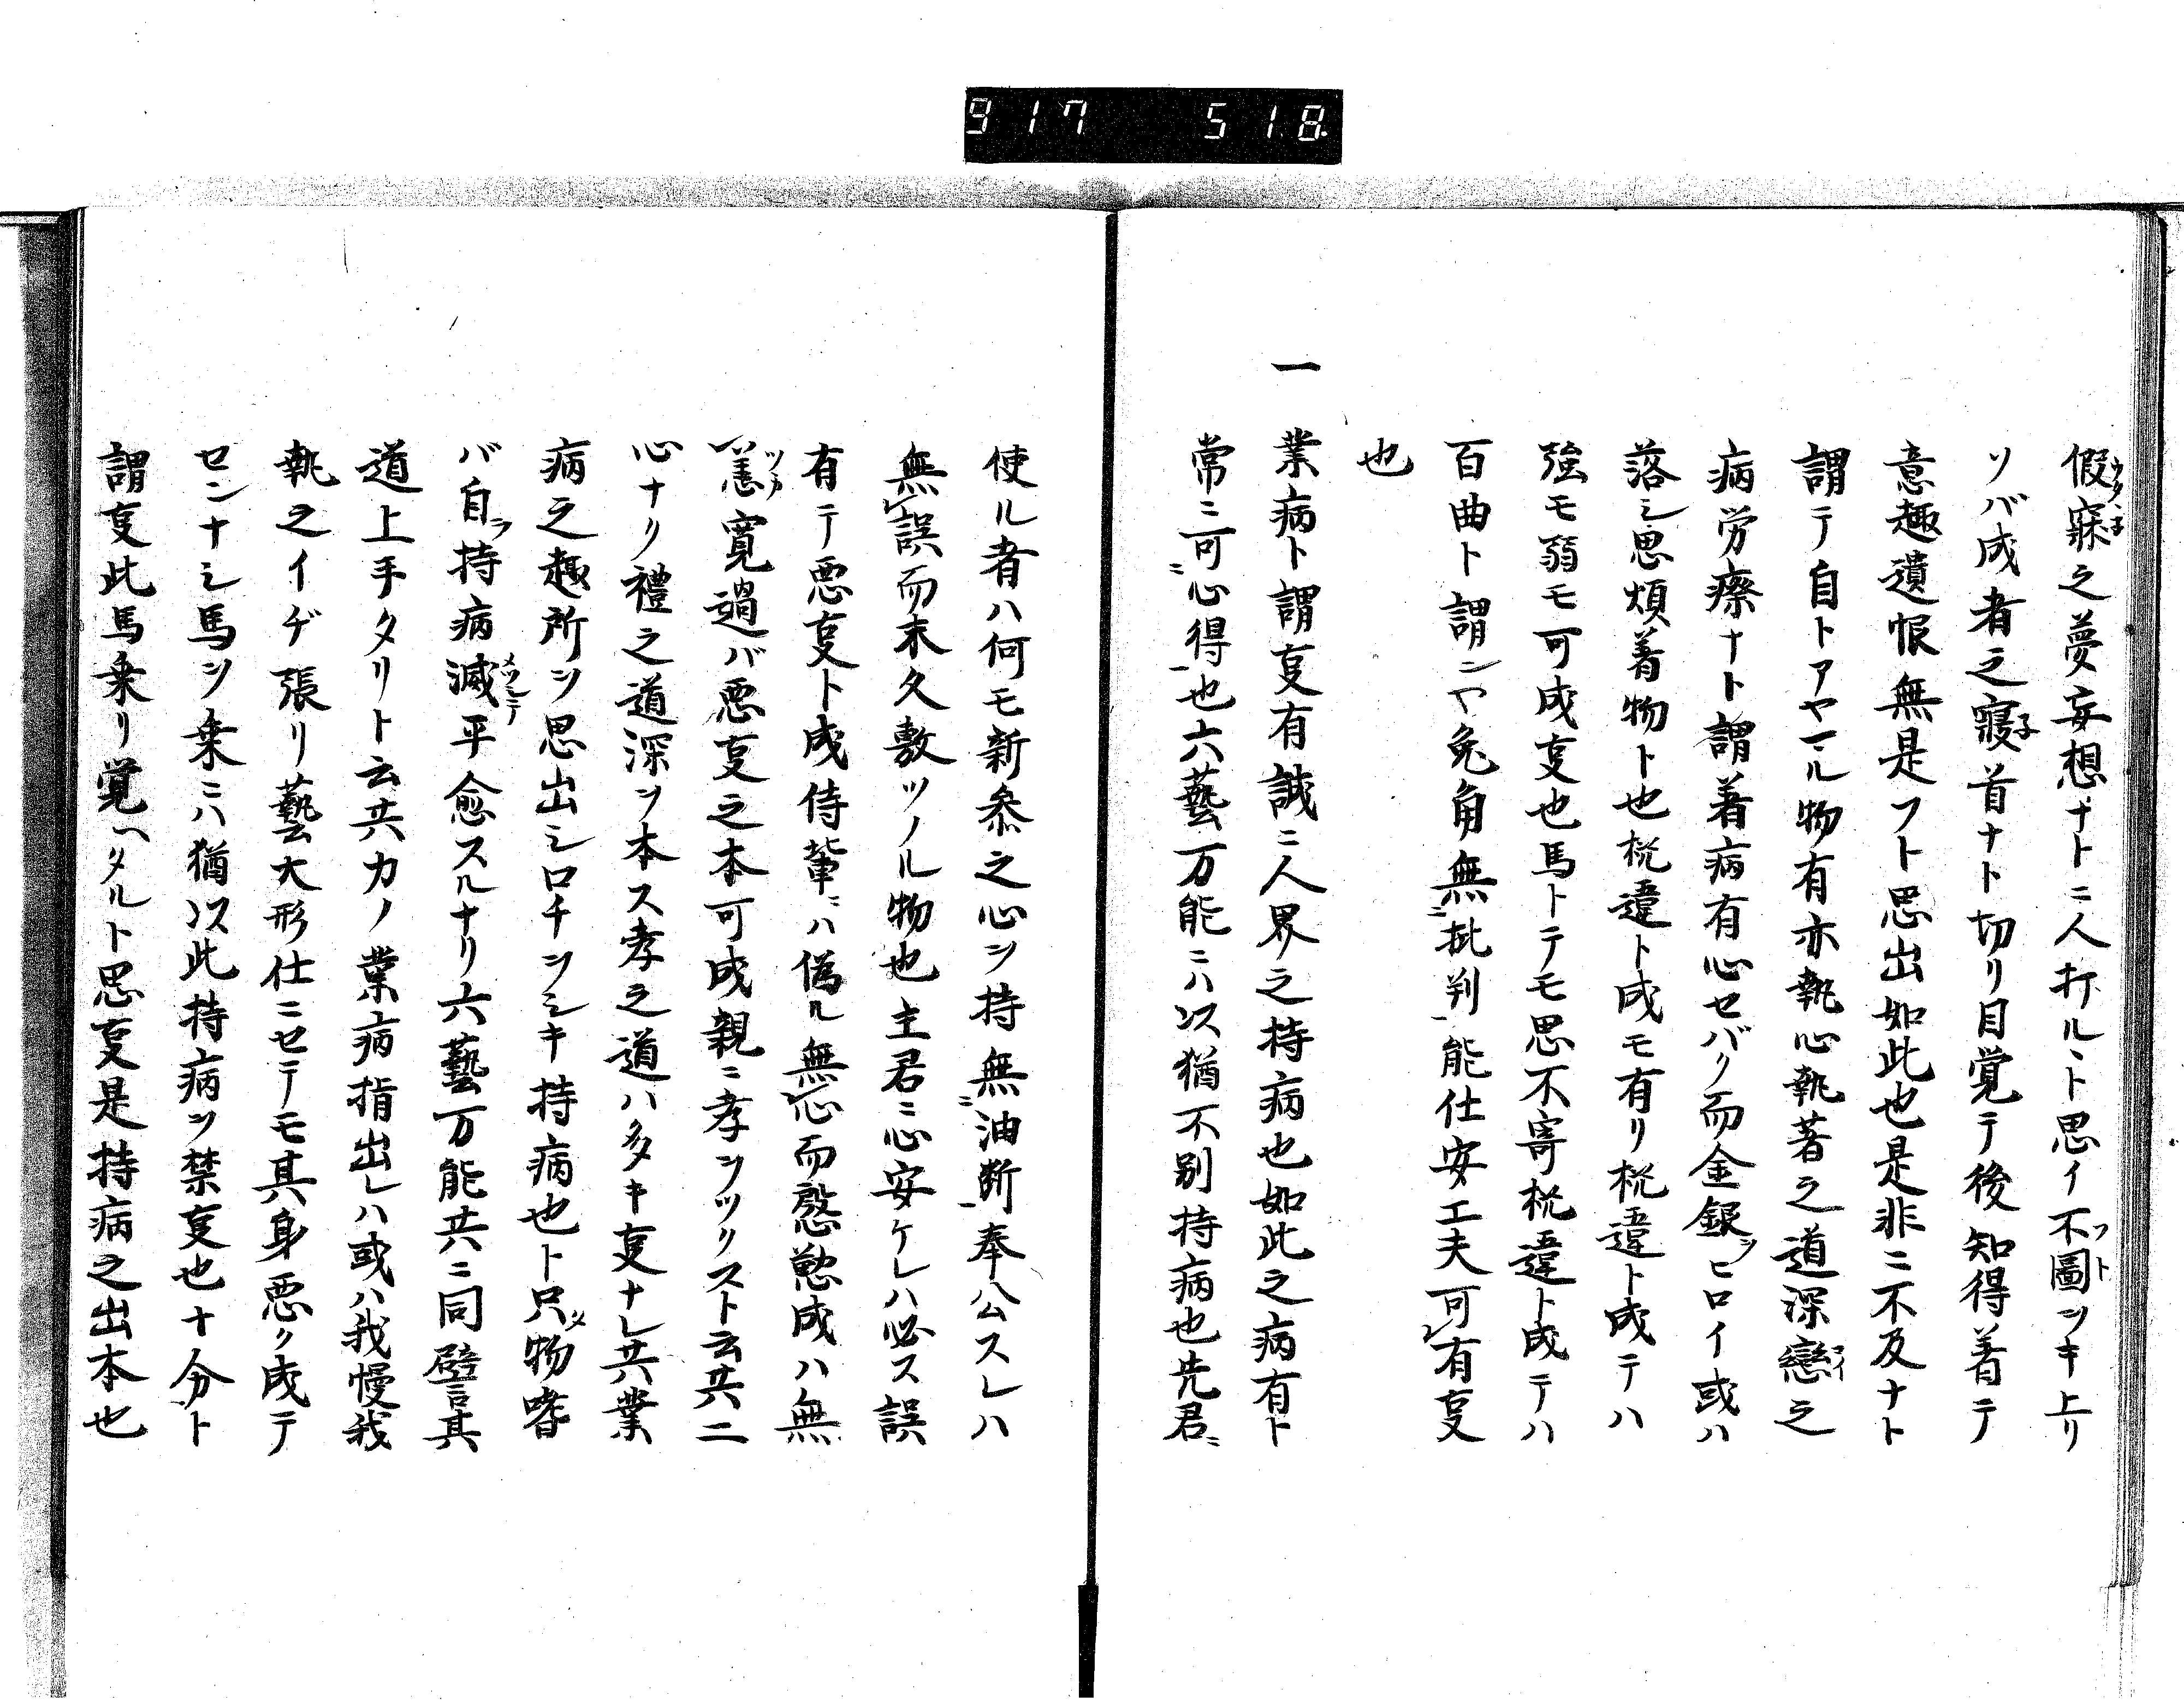 917 518
假寐之夢妄想ナトニ人打ル丶ト思イ不圖ツキ上リ
ソバ成者之寢首ナト切リ目覚テ後知得着テ
意趣遺恨無是フト思出如此也是非ニ不及ナト
謂テ自トアヤマル物有亦執心執著之道深戀之
病労瘵ナト謂著病有心セバク而金銀ヲヒロイ或ハ
落シ思煩著物ト也枕違ト成モ有リ枕違ト成テハ
強モ弱モ可成叓也馬トテモ思不寄枕違ト成テハ
百曲ト謂ンヤ兔角無批判能仕安工夫可有叓
也
一 業病ト謂叓有誠ニ人界之持病也如此之病有ト
常ニ可心得也六藝万能ニハ以猶不別持病也先君ニ
使ル者ハ何モ新参之心ヲ持無油断奉公スレハ
無誤而末久敷ツノル物也主君ニ心安ケレハ必ス誤
有テ悪叓ト成侍輩ニハ偽ル無心而慇懃成ハ無
恙寛過バ悪叓之本可成親ニ孝ヲツクスト云共二
心ナリ禮之道深ヲ本ス孝之道ハ多キ叓ナレ共業
病之趣所ヲ思出シロチヲシキ持病也ト只物嗜
バ自ラ持病滅平愈スルナリ六藝万能共ニ同譬其
道上手タリト云共カノ業病指出レハ或ハ我慢我
執之イヂ張リ藝大形仕ニセテモ其身悪ク成テ
センナシ馬ヲ乗ニハ猶以此持病ヲ禁叓也十分ト
謂叓此馬乗リ覚ヘタルト思叓是持病之出本也